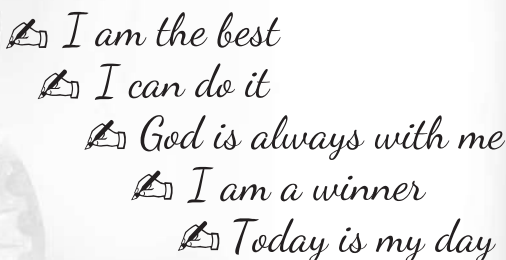 ✍ I am the best
✍ I can do it
✍ God is always with me
✍ I am a winner
✍ Today is my day